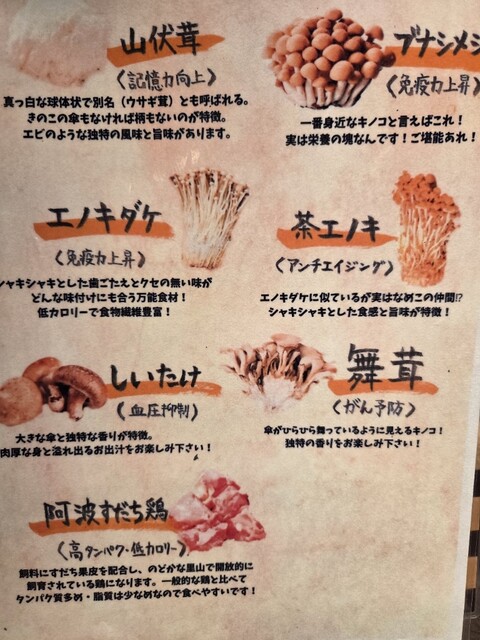 山伏茸
(記憶力向上)
真っ白な球体状で別名(ウサギ茸)とも呼ばれる。
きのこの傘もなければ柄もないのが特徴。
エビのような独特の風味と旨味があります。
ブナシメジ
(免疫力上昇)
一番身近なキノコと言えばこれ!
実は栄養の塊なんです!ご堪能あれ!
エノキダケ
(免疫力上昇)
シャキシャキとした歯ごたえとクセの無い味が
どんな味付けにも合う万能食材!
低カロリーで食物繊維豊富!
茶エノキ
(アンチエイジング)
エノキダケに似ているが実はなめこの仲間!?
シャキシャキとした食感と旨味が特徴!
しいたけ
(血圧抑制)
大きな傘と独特な香りが特徴。
肉厚な身と溢れ出るお出汁をお楽しみ下さい!
舞茸
(がん予防)
傘がひらひら舞っているように見えるキノコ!
独特の香りをお楽しみ下さい!
阿波すだち鶏
(高タンパク・低カロリー)
飼料にすだち果皮を配合し、のどかな里山で開放的に
飼育されている鶏になります。一般的な鶏と比べて
タンパク質多め・脂質は少なめなので食べやすいです!